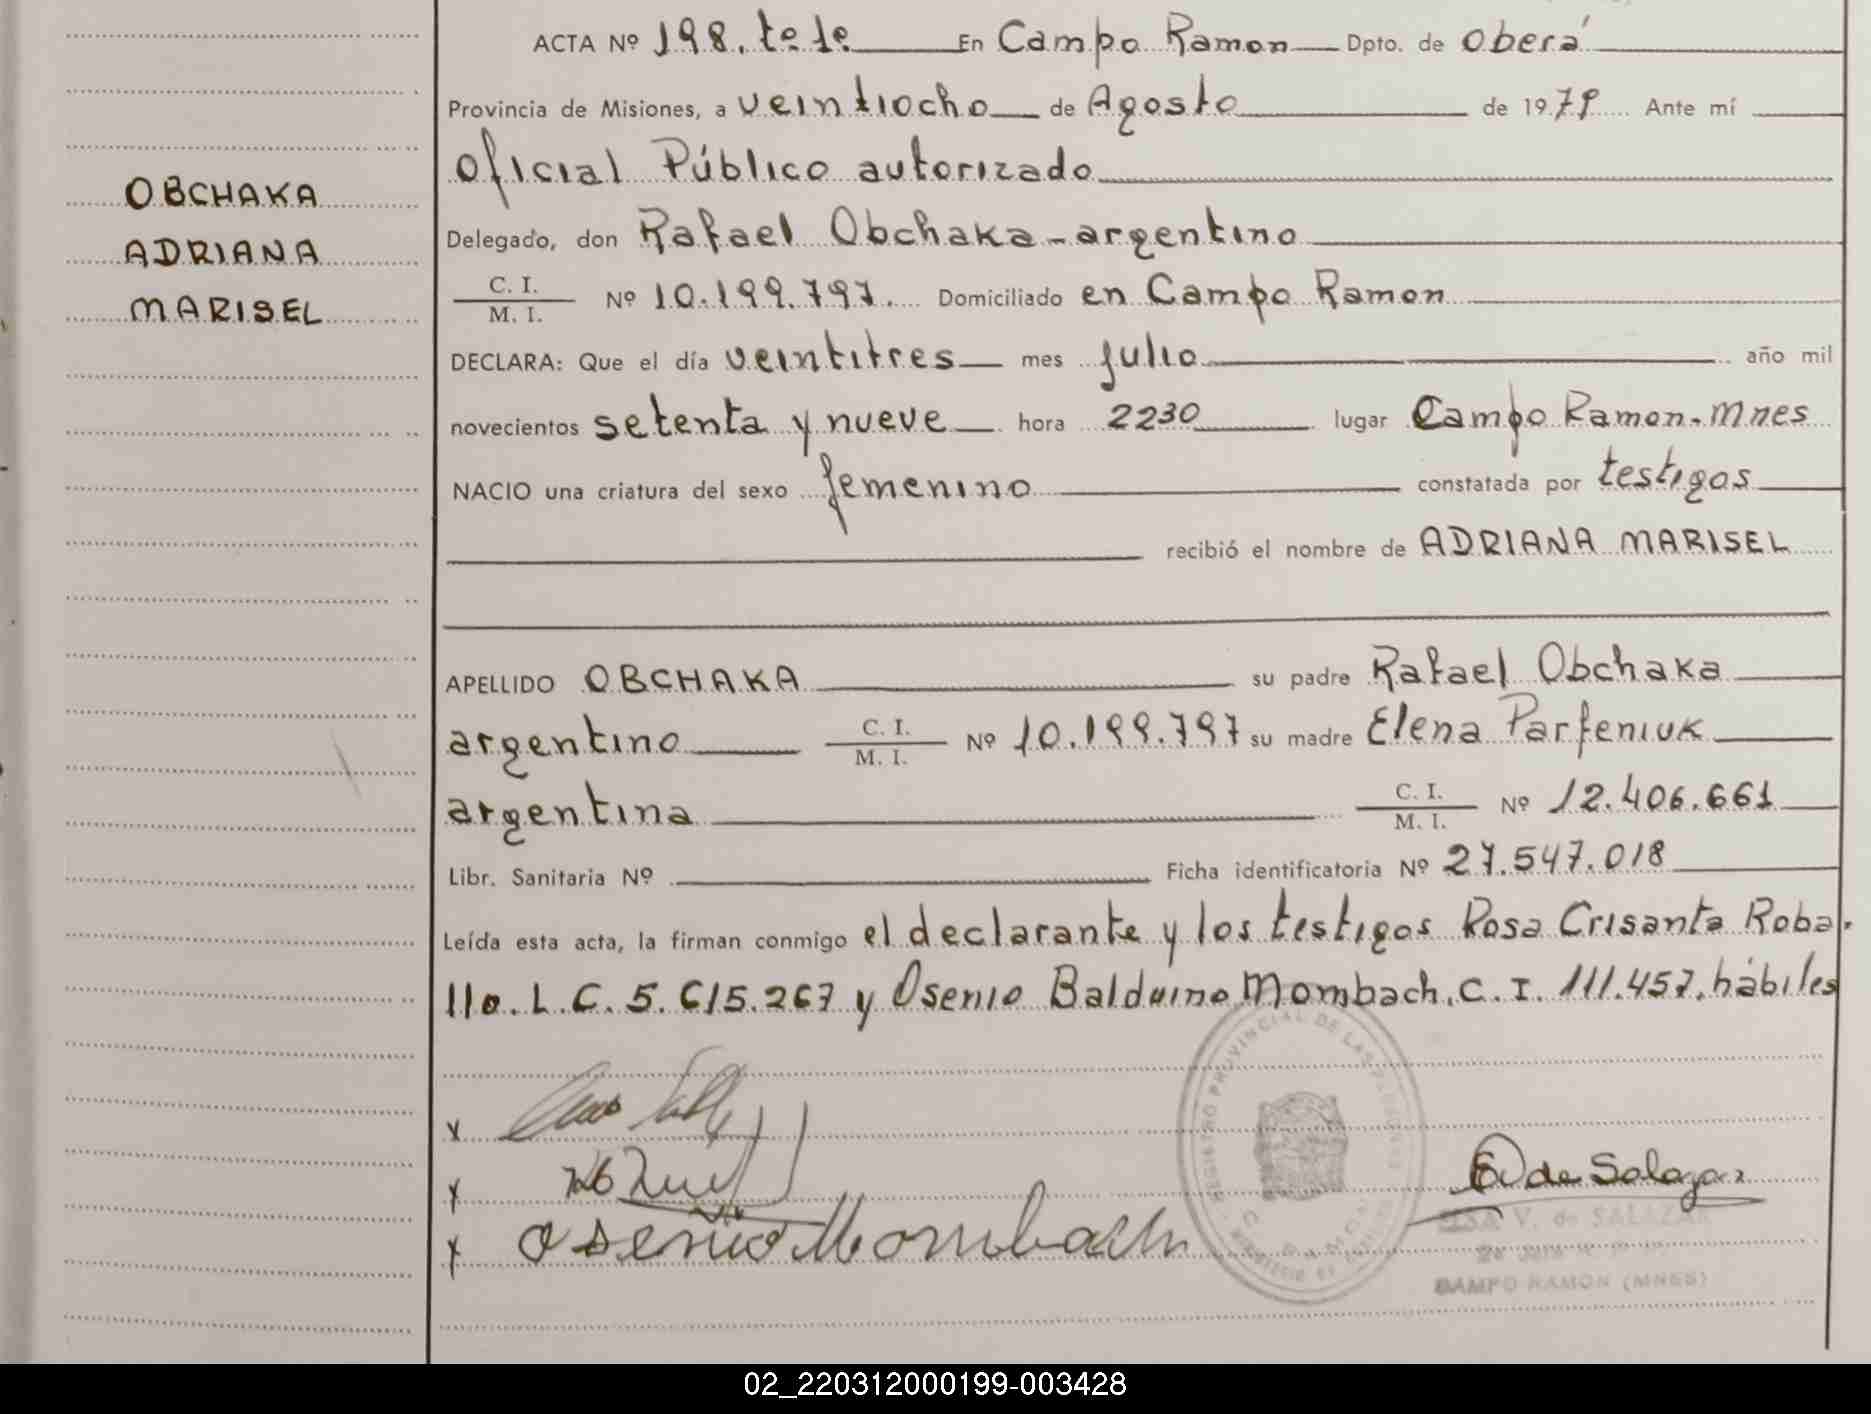 ACTA Nº 198. tº 1º En Campo Ramon Dpto. de Oberá
Provincia de Misiones, a veintiocho de Agosto de 1979 Ante mí
Oficial Público autorizado
OBCHAKA
Delegado, don Rafael Obchaka - argentino
ADRIANA
C. I.
M. I. Nº 10.199.797. Domiciliado en Campo Ramon
MARISEL
DECLARA: Que el día veintitres mes julio año mil
novecientos setenta y nueve hora 2230 lugar Campo Ramon. Mnes
NACIO una criatura del sexo femenino constatada por testigos
recibió el nombre de ADRIANA MARISEL
APELLIDO OBCHAKA su padre Rafael Obchaka
argentino C. I. M. I. Nº 10.199.797 su madre Elena Parfeniuk
argentina C. I. M. I. Nº 12.406.661
Libr. Sanitaria Nº Ficha identificatoria Nº 27.547.018
Leída esta acta, la firman conmigo el declarante y los testigos Rosa Crisanta Roba-
llo. L.C. 5.615.267 y Osenio Balduino Mombach. C.I. 111.457. hábiles
REGISTRO PROVINCIAL DE LAS PERSONAS
x
x
x Osenio Mombach
E V de Salazar
ELSA V. de SALAZAR
CAMPO RAMON (MNES)
02_220312000199-003428